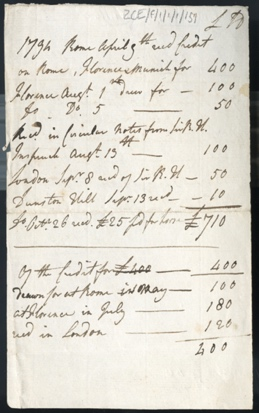 ZCE/F/1/1/1/159
£
1794 Rome April 9th recd Credit
on Rome, Florence, Munich for 400
Florence Augt 1st drew for — 100
Do. Do. 5 — 50
Recd in Circular Notes from Sir R. H.
Inspruch Augt 13th — 100
London Sepr. 8 recd of Sir R. H — 50
Dunston Hill Sepr. 13 recd — 10
Do Octr. 26 recd. £25 for horse £710
Of the Credit for £400 — 400
drawn for at Rome in May — 100
at Florence in July — 180
recd in London — 120
400